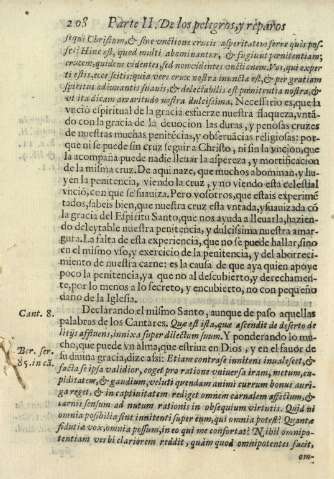 208 Parte II. De los pelegros, y reparos
sequi Christum, & sine vnctione crucis asperitatem ferre quis pos-
set? Hinc est, quod multi abominantur, & fugiunt pœnitentiam;
crucem, quidem videntes, sed non videntes vnctionem. Vos, qui exper
ti estis, scitis: quia vere crux nostra inuncta est, & per gratiam
spiritus adiuuantis suauis, & delectabilis est pœnitentia nostra, &
vt ita dicam amaritudo nostra dulcissima. Necessario es, que la
vnció spiritual de la gracia esfuerze nuestra flaqueza, vntã
do con la gracia de la deuocion las duras, y penosas cruzes
de nuestras muchas penitécias, y obseruácias religiosas: por-
que ni se puede sin cruz seguir a Christo, ni sin la vnciòn, que
la acompaña puede nadie lleuar la aspereza, y mortificacion
de la misma cruz. De aqui naze, que muchos abominan, y hu-
yen la penitencia, viendo la cruz, y no viendo esta celestial
vnciò, con que se suauiza. Pero vosotros, que estais experimé
tados, sabeis bien, que nuestra cruz està vntada, y suauizada có
la gracia del Espiritu Santo, que nos ayuda a lleuarla, haziendo
deleytable nuestra penitencia, y dulcissima nuestra amar-
gura. La falta de esta experiencia, que no se puede hallar, sino
en el mismo vso, y exercicio de la penitencia, y del aborreci-
miento de nuestra carne: es la causa de que aya quien apoye
poco la penitencia, ya que no al descubierto, y derechamen-
te, por lo menos a lo secreto, y encubierto, no con pequeño
daño de la Iglesia.
Cant. 8. Declarando el mismo Santo, aunque de paso aquellas
palabras de los Cantares. Quæ est ista, quæ ascendit de deserto de
litijs affluens, innixa super dilectum suum. Y ponderando lo mu-
Ber. ser. cho, que puede vn alma, que estriua en Dios, y en el fauor de
85. in cã. su diuina gracia, dize assi: Etiam contra se inniteni inualescet, &
facta se ipsa validior, coget pro ratione vniuersa iram, metum, cu-
piditatem, & gaudium, veluti quendam animi currum bonus auri-
ga reget, & in captiuitatem rediget omnem carnalem affectum, &
carnis sensum ad nutum rationis in obsequium virtutis. Quid ni
omnia possibilia sint innitenti super eum, qui omnia potest? Quantæ
fiducia vox, omnia possum, in eo qui me confortat? Nihil omnipo-
tentiam verbi clariorem reddit, quàm quod omnipotentes facit,
om-